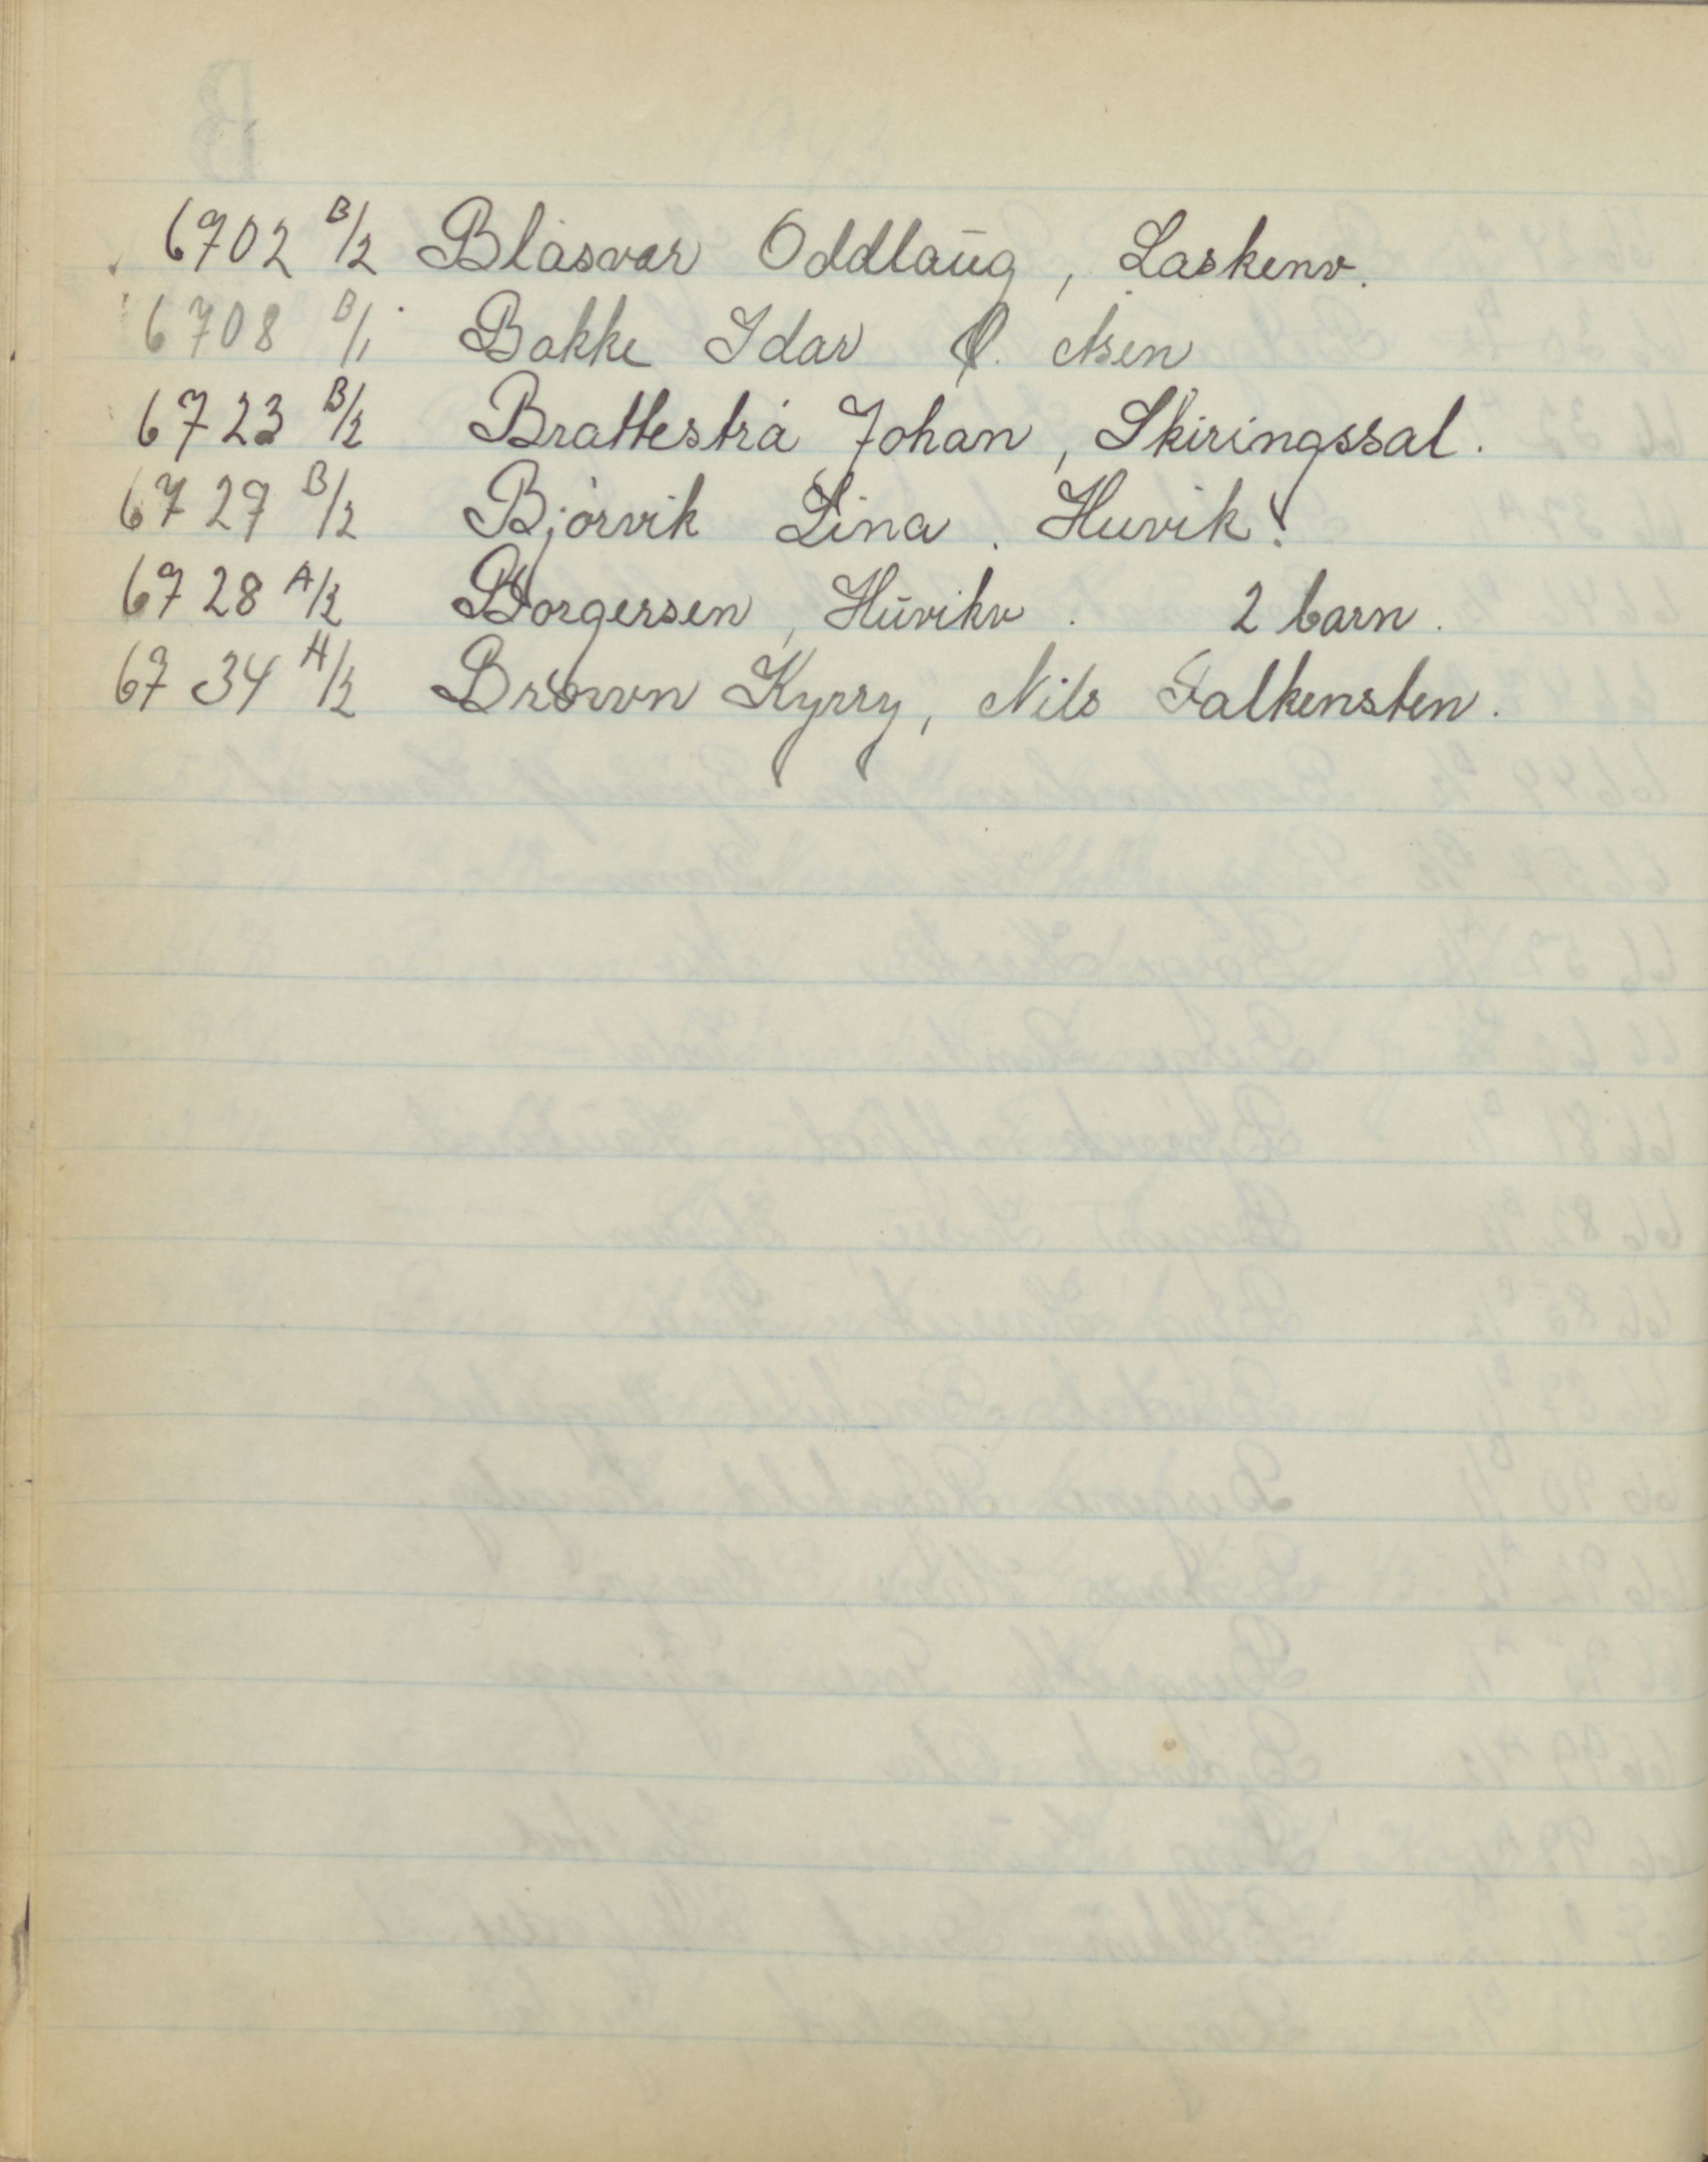 6702 B/2 Blåsvær Oddlaug, Laskenv.
6708 B/1 Bakke Idar Ø. Åsen
6723 B/2 Brattestrå Johan, Skiringssal.
6727 B/2 Bjørvik Lina. Huvik!
6728 A/2 Borgersen, Huvikv. 2 barn.
6734 A/2 Brown Kyrry, Nils Falkensten.